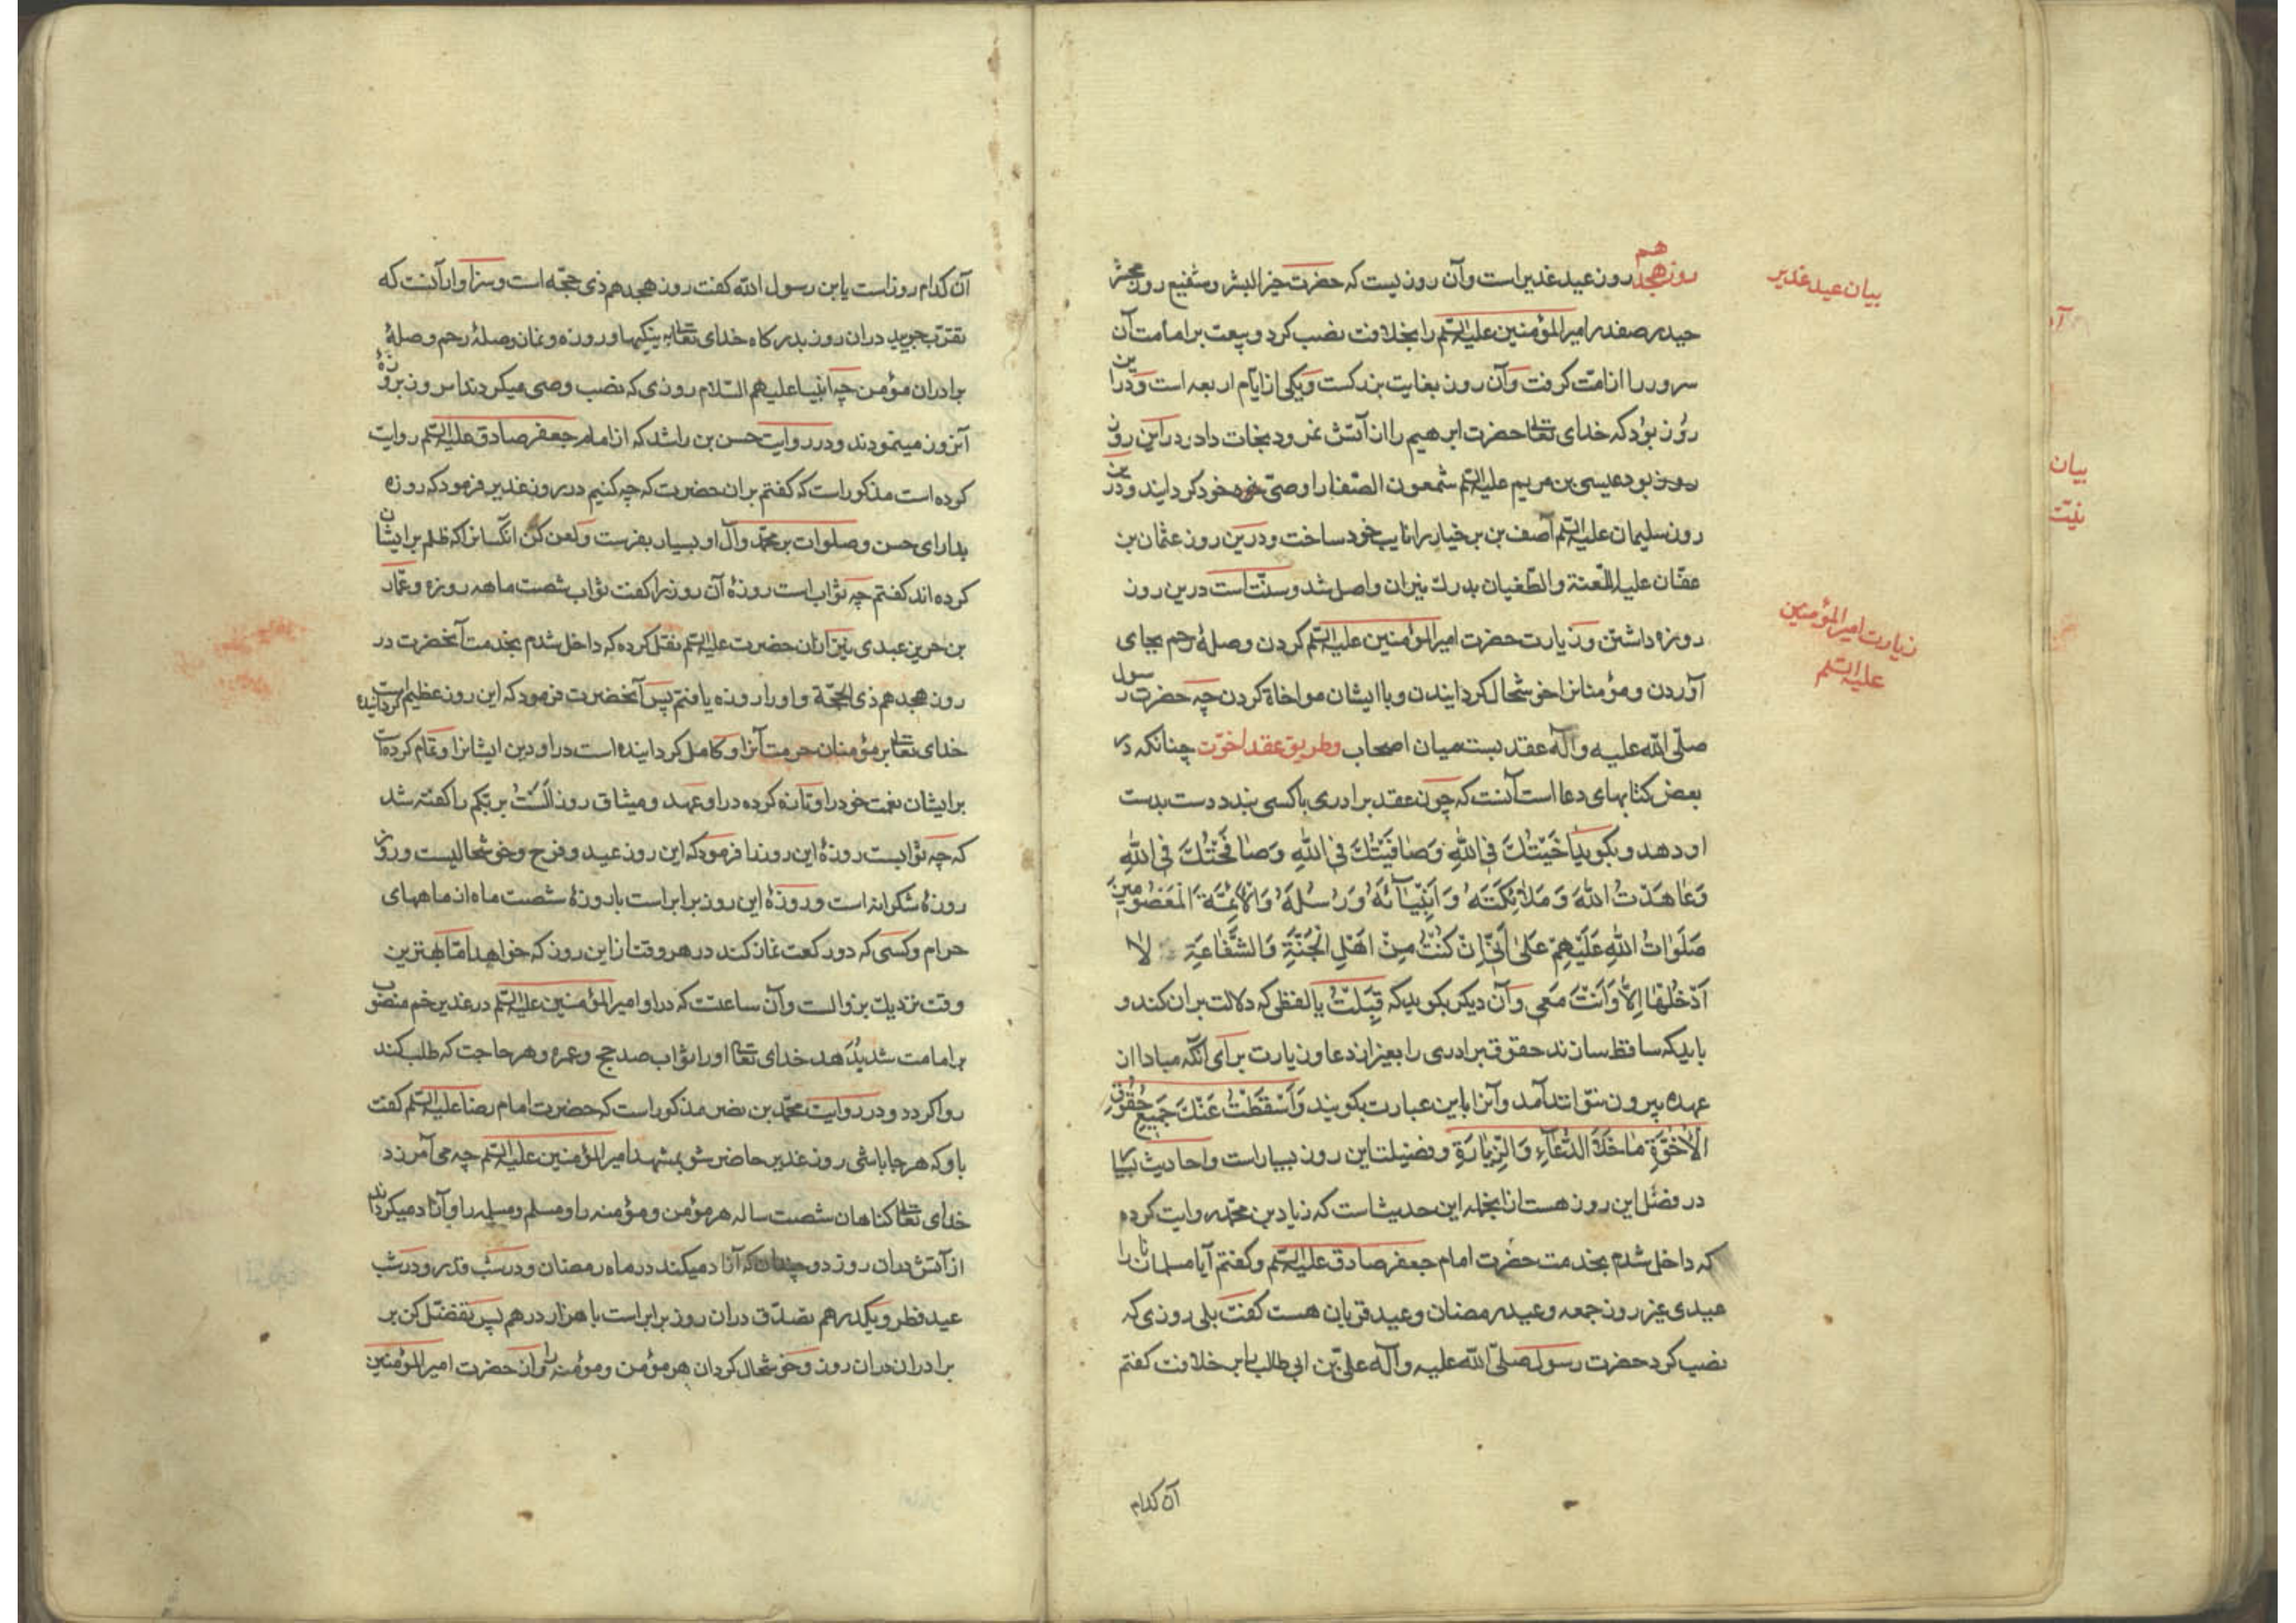 بیان عید غدیر
روز هجدهم روز عید غدیر است و آن روزیست که حضرت خیر البشر و شفیع روز محشر
حیدر صفدر امیر المؤمنین علیه السلم را بخلافت نصب کرد و بیعت بر امامت آن
سرور را از امت کرفت و آن روز بغایت بزرکست و یکی از ایام اربعه است و درین
روز بود که خدای تعالی حضرت ابرهیم را از آتش نمرود نجات داد و در این روز
روز بود عیسی بن مریم علیه السلم شمعون الصفا را وصی خود کردانید و درین
روز سلیمان علیه السلم آصف بن برخیا را نایب خود ساخت و درین روز عثمان بن
عفان علیه اللعنة والطغیان بدرك نیران واصل شد و سنت است درین روز
روزه داشتن و زیارت حضرت امیر المؤمنین علیه السلم کردن و صلهٔ رحم بجای
زیارت امیر المؤمنین
علیه السلم
آوردن و مؤمنانرا خوشحال کردانیدن و با ایشان مواخاة کردن چه حضرت رسول
صلی الله علیه وآله عقد بست میان اصحاب و طریق عقد اخوت چنانکه در
بعض کتابهای دعا است آنست که چون عقد برادری با کسی بندد دست بدست
او دهد و بکوید اخَیْتُكَ فِی اللّٰهِ وَصَافَیْتُكَ فِی اللّٰهِ وَصَافَحْتُكَ فِی اللّٰهِ
وَعَاهَدْتُ اللّٰهَ وَمَلَائِکَتَهُ وَاَنْبِیَآئَهُ وَرُسُلَهُ وَالْاَئِمَّةَ الْمَعْصُومِینَ
صَلَوَاتُ اللّٰهِ عَلَیْهِمْ عَلیٰ اَنِّی اِنْ کُنْتُ مِنْ اَهْلِ الْجَنَّةِ وَالشَّفَاعَةِ لَا
اَدْخُلُهَا اِلَّا وَاَنْتَ مَعِی و آن دیکر بکوید که قَبِلْتُ یا لفظی که دلالت بران کند و
باید که ساقط سازند حقوق برادری را بغیر از دعا و زیارت برای آنکه مبادا از ان
عهده بیرون نتوانند آمد و آنرا باین عبارت بکویند وَاَسْقَطْتُ عَنْكَ جَمِیعَ حُقُوقِ
الْاُخُوَّةِ مَا خَلَا الدُّعَآءِ وَالزِّیَارَةِ و فضیلت این روز بسیار است و احادیث بسیار
در فضل این روز هست از انجمله این حدیث است که زیاد بن محمد روایت کرده
که داخل شدم بخدمت حضرت امام جعفر صادق علیه السلم و کفتم آیا مسلمانان را
عیدی غیر روز جمعه و عید رمضان و عید قربان هست کفت بلی روزی که
نصب کرد حضرت رسول صلی الله علیه وآله علی بن ابی طالب را بر خلافت کفتم
آن کدام
آن کدام روز است یا بن رسول الله کفت روز هجدهم ذی حجه است و سزاوار آنست که
تقرب جویید دران روز بدرکاه خدای تعالی بنیکیها و روزه و نماز و صلهٔ رحم و صلهٔ
برادران مؤمن چه انبیا علیهم السلام روزی که نصب وصی میکردند امر بروزهٔ
آنروز مینمودند و در روایت حسن بن راشد که از امام جعفر صادق علیه السلم روایت
کرده است مذکور است که کفتم بران حضرت که چه کنیم در روز غدیر فرمود که روزه
بدار ای حسن و صلوات بر محمد و آل او بسیار بفرست و لعن کن انکسانرا که ظلم بر ایشان
کرده اند کفتم چه ثواب است روزهٔ آن روز را کفت ثواب شصت ماهه روزه و عمار
بن حرین عبدی نیز ازان حضرت علیه السلم نقل کرده که داخل شدم بخدمت آنحضرت در
روز هجدهم ذی الحجة و او را روزه یافتم پس آنحضرت فرمود که این روز عظیم است کردانیده
خدای تعالی بر مؤمنان حرمت آنرا و کامل کردانیده است در او دین ایشانرا و تمام کرده است
بر ایشان نعمت خود را و تازه کرده در او عهد و میثاق روز اَلَسْتُ بربکم را کفته شد
که چه ثوابست روزهٔ این روز را فرمود که این روز عید و فرح و خوشحالیست و روز
روزهٔ شکرانه است و روزهٔ این روز برابر است با روزهٔ شصت ماه از ماههای
حرام و کسی که دو رکعت نماز کند در هر وقت از این روز که خواهد اما بهترین
وقت نزدیك بزوالست و آن ساعتست که در او امیر المؤمنین علیه السلم در غدیر خم منصوب
بر امامت شد بدهد خدای تعالی او را ثواب صد حج و عمره و هر حاجت که طلب کند
روا کردد و در روایت محمد بن نصر مذکور است که حضرت امام رضا علیه السلم کفت
باو که هر جا باشی روز غدیر حاضر شو بمشهد امیر المؤمنین علیه السلم چه می آمرزد
خدای تعالی کناهان شصت ساله هر مؤمن و مؤمنه را و مسلم و مسلمه را و آزاد میکرداند
از آتش دران روز دو چندان که آزاد میکند در ماه رمضان و در شب قدر و در شب
عید فطر و یکدرهم تصدق دران روز برابر است با هزار درهم پس تفضل کن بر
برادران دران روز و خوشحال کردان هر مؤمن و مؤمنه را و از حضرت امیر المؤمنین